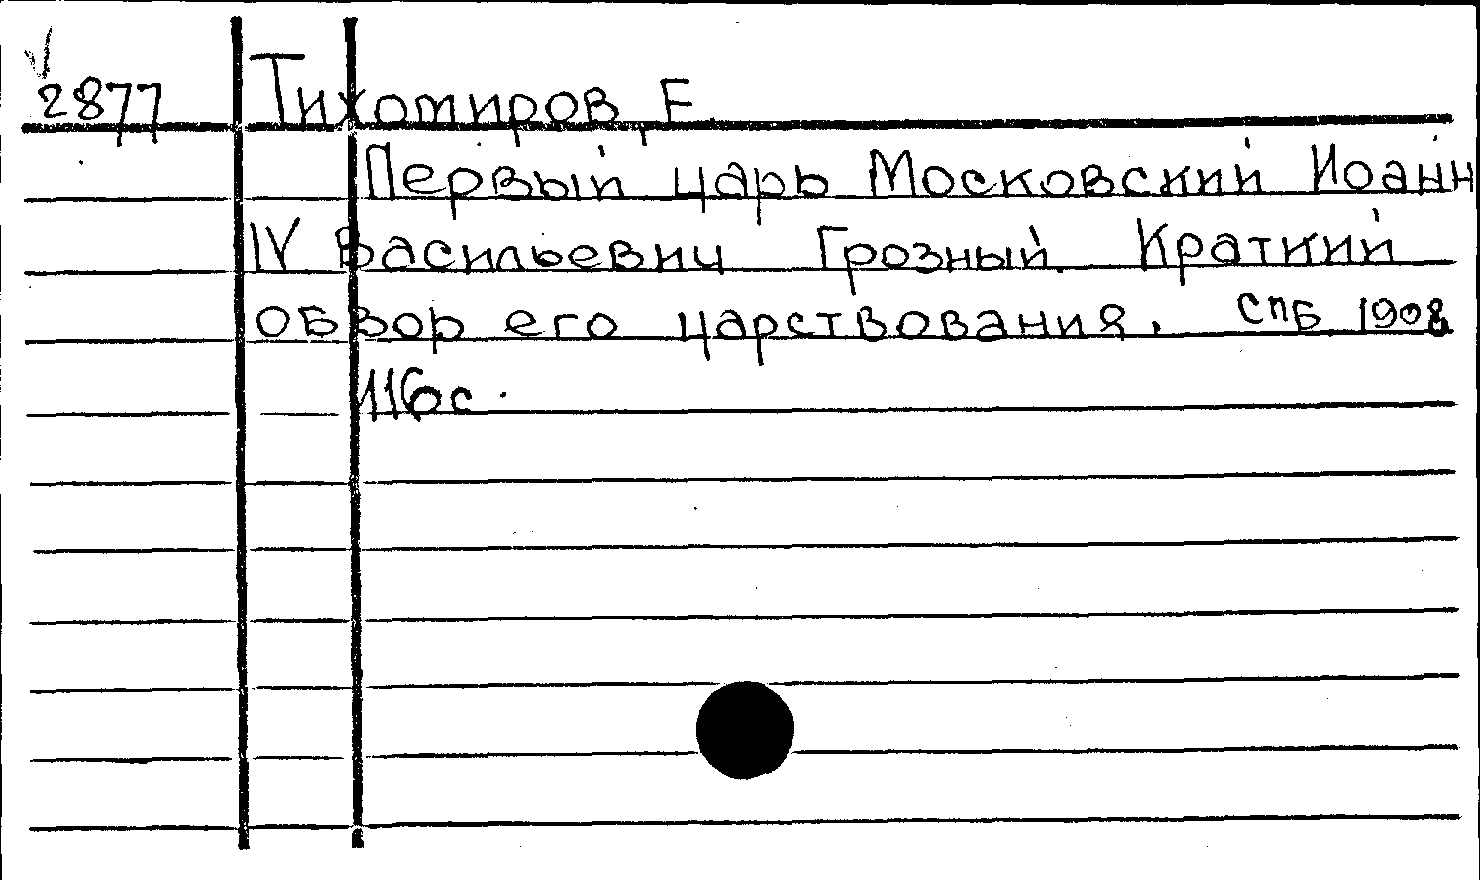 V
2877 Тихомиров, Е
Первый царь Московский Иоанн
IV Васильевич Грозный. Краткий
обзор его царствования. СПБ 1908
116с.